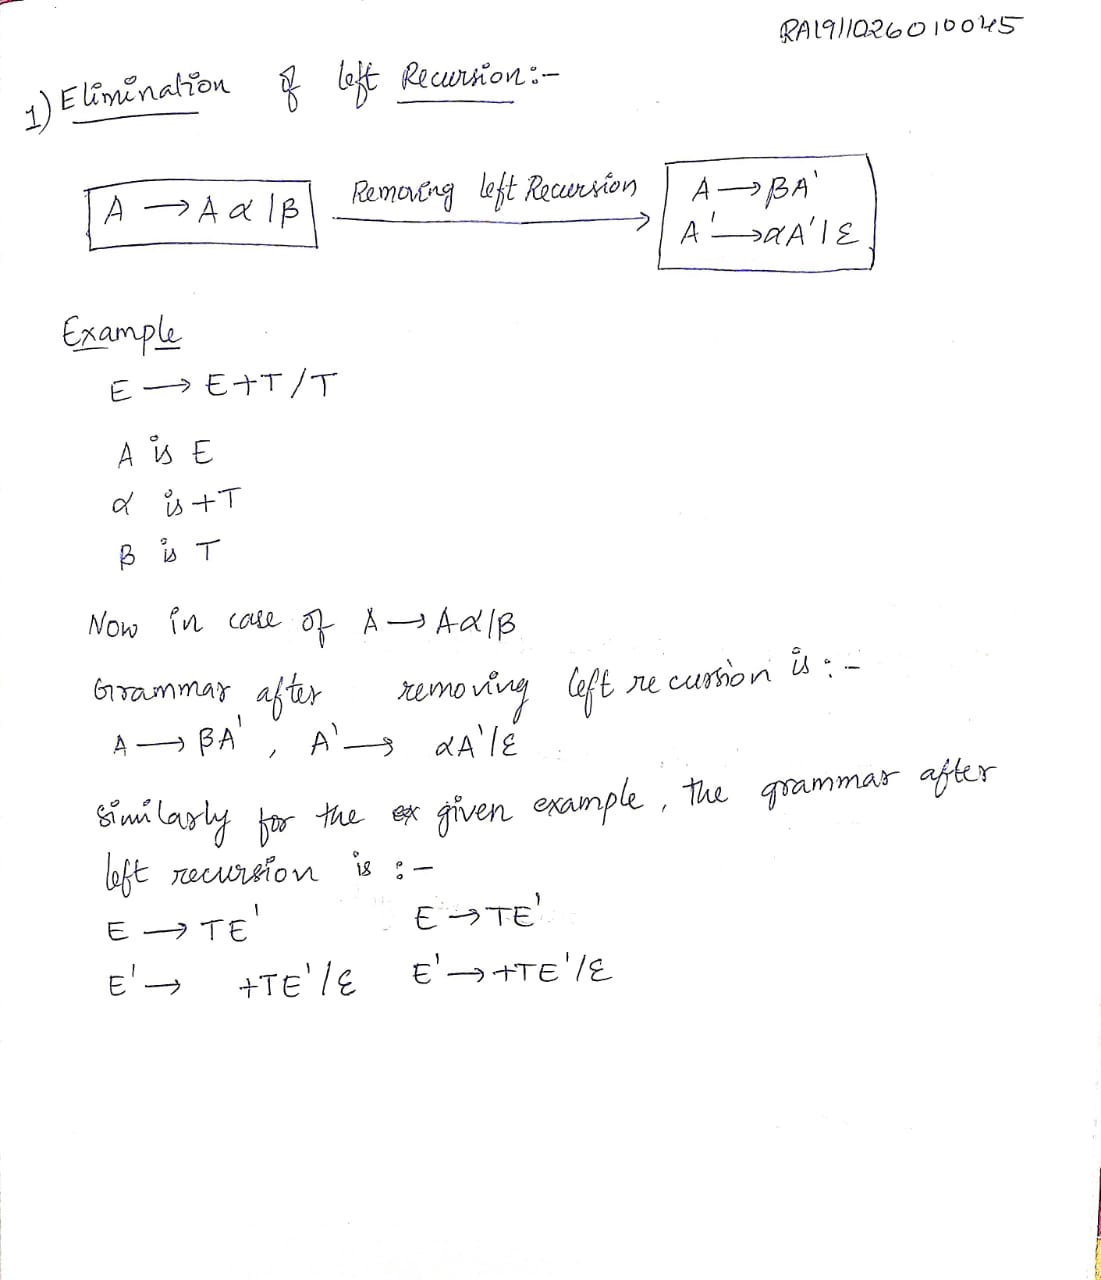 RA1911026010045
1) Elimination of left Recursion:-
A → Aα|β Removing left Recursion A → βA'
A' → αA'|ε
Example
E → E+T/T
A is E
α is +T
β is T
Now in case of A → Aα|β
Grammar after removing left recursion is :-
A → βA' , A' → αA'|ε
Similarly for the ex given example, the grammar after
left recursion is :-
E → TE' E → TE'
E' → +TE'/ε E' → +TE'/ε